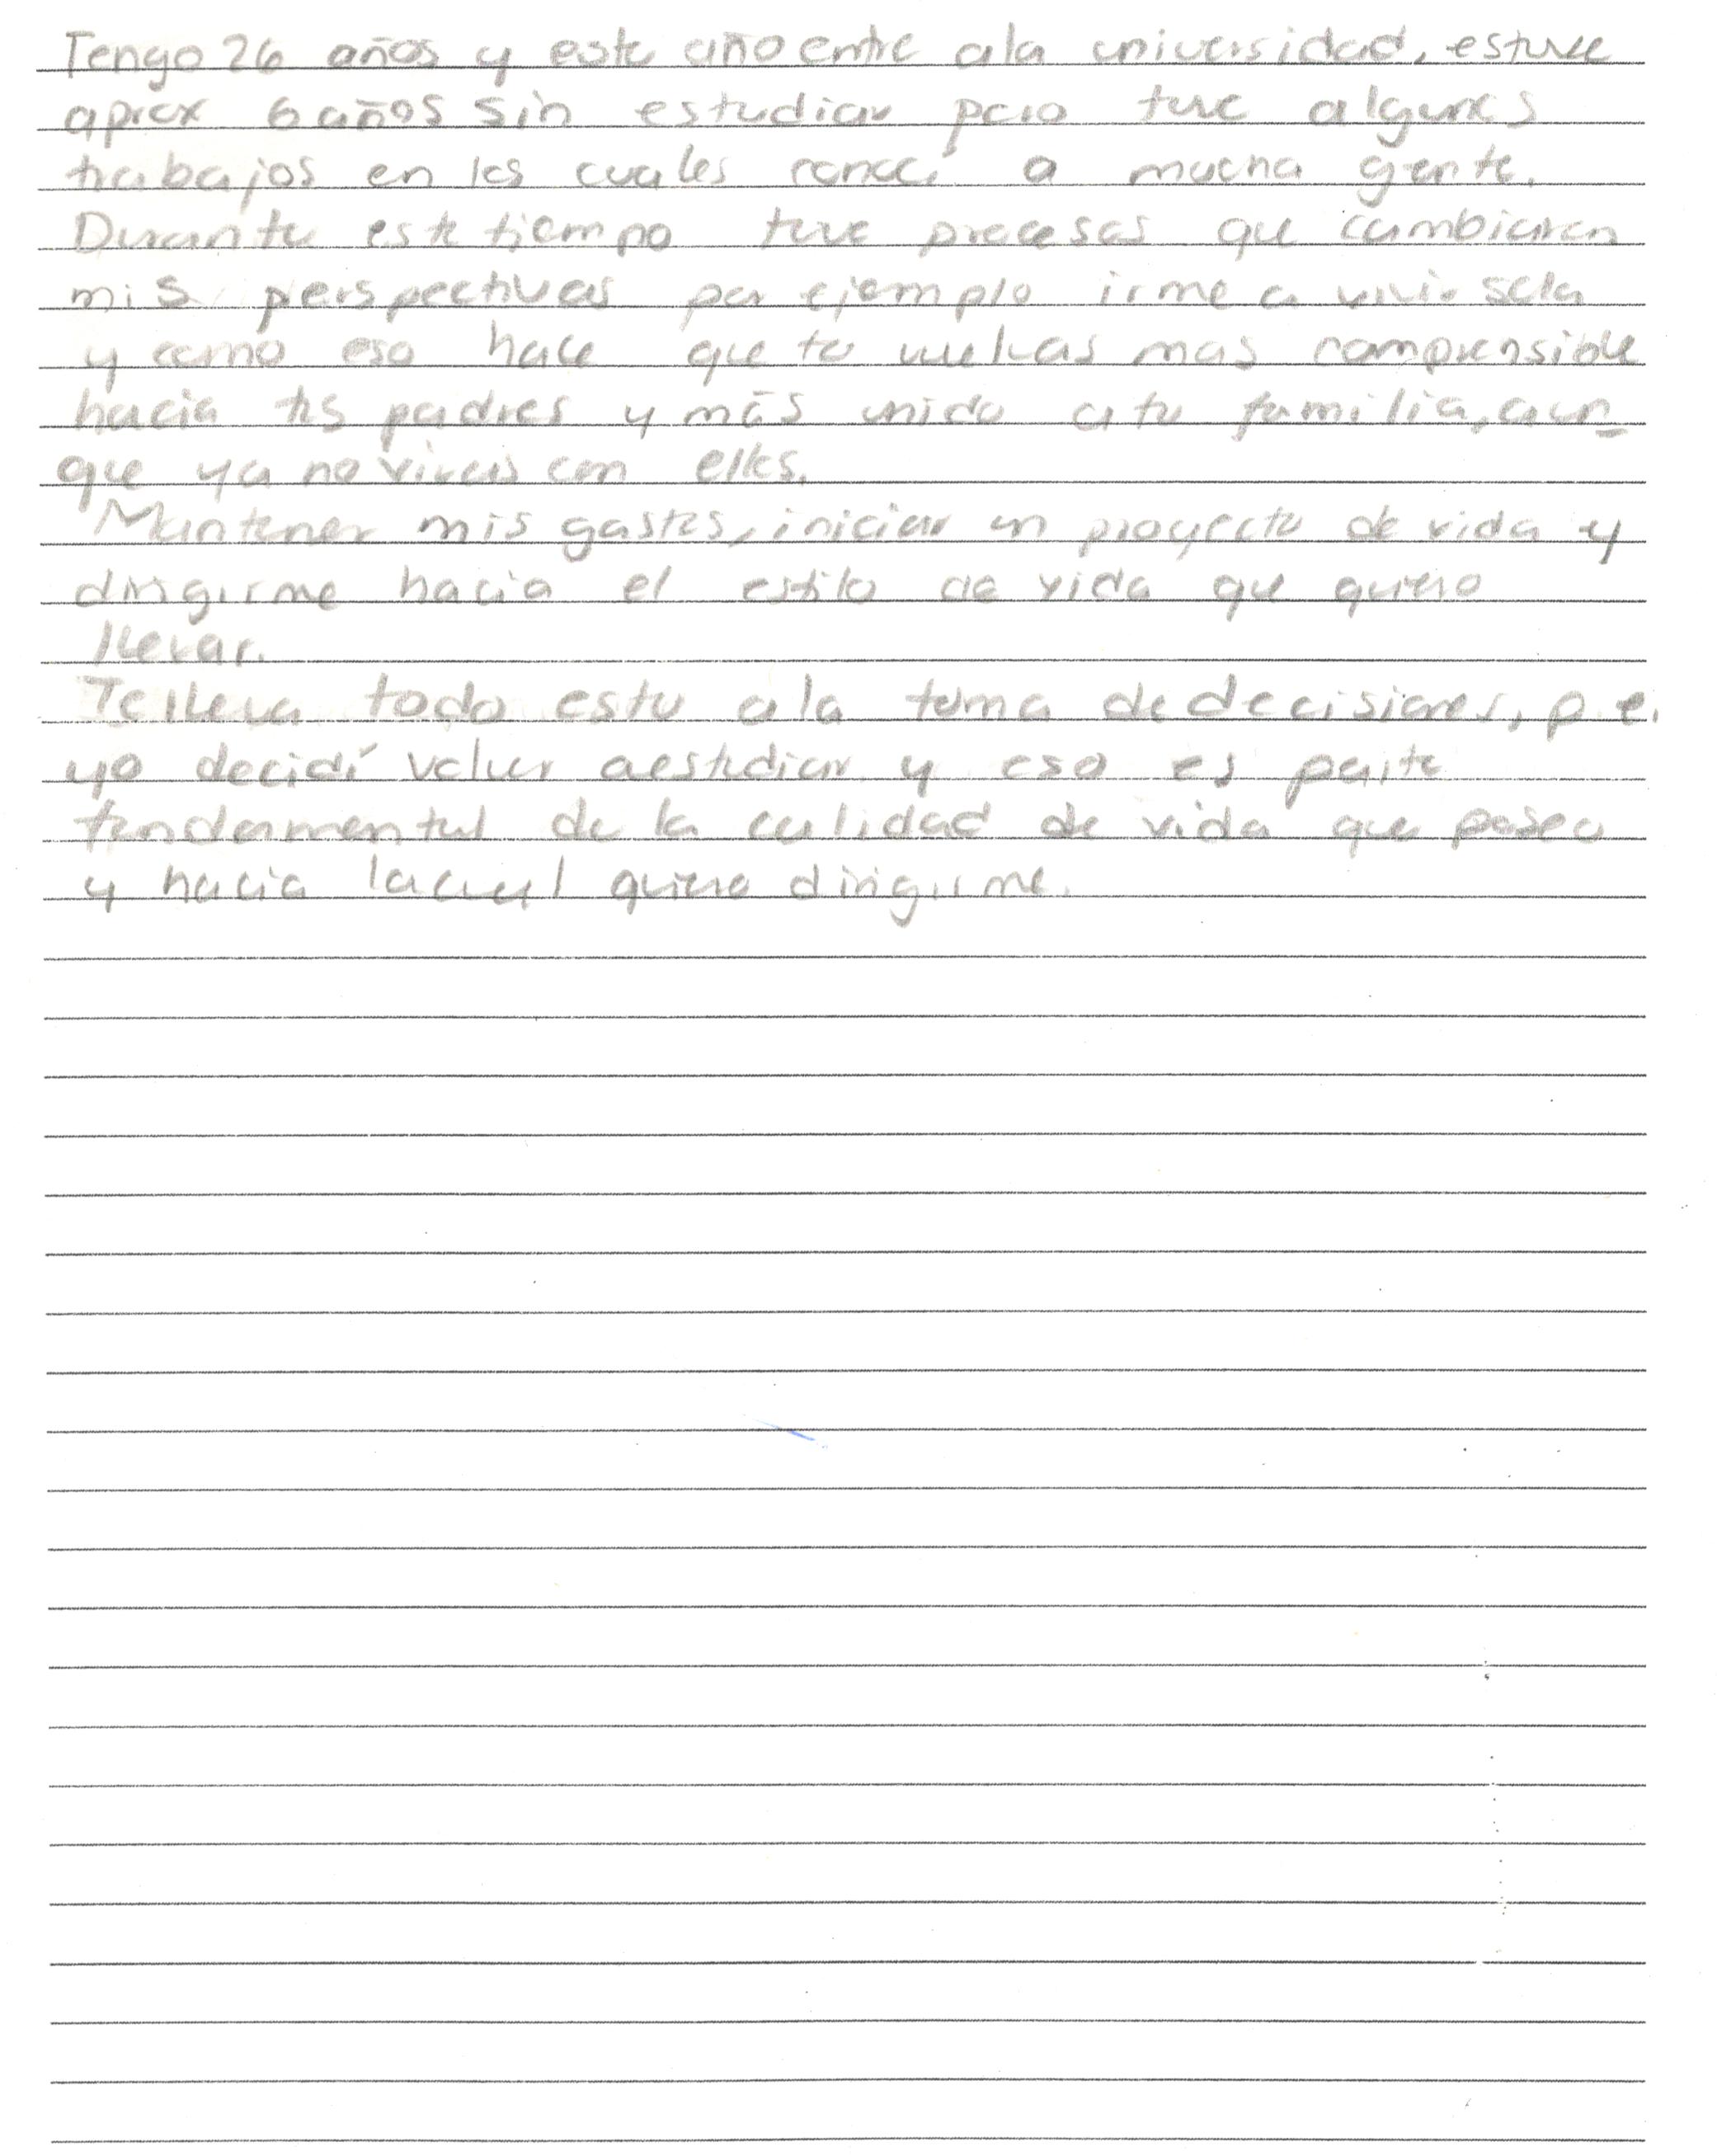 Tengo 26 años y este año entre a la universidad, estuve
aprox 6 años sin estudiar pero tuve algunos
trabajos en los cuales conocí a mucha gente.
Durante este tiempo tuve procesos que cambiaron
mis perspectivas por ejemplo irme a vivir sola
y como eso hace que te vuelvas mas comprensible
hacia tus padres y más unido a tu familia, aun_
que ya no vivas con ellos.
Mantener mis gastos, iniciar un proyecto de vida y
dirigirme hacia el estilo de vida que quiero
llevar.
Te lleva todo esto a la toma de decisiones, p.e.
yo decidí volver a estudiar y eso es parte
fundamental de la calidad de vida que poseo
y hacia la cual quiero dirigirme.